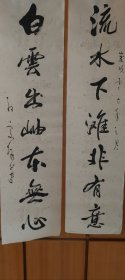 流水下灘非有意
白雲出岫本無心